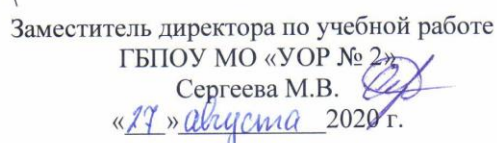 Заместитель директора по учебной работе
ГБПОУ МО «УОР № 2»
Сергеева М.В.
«27» августа 2020 г.